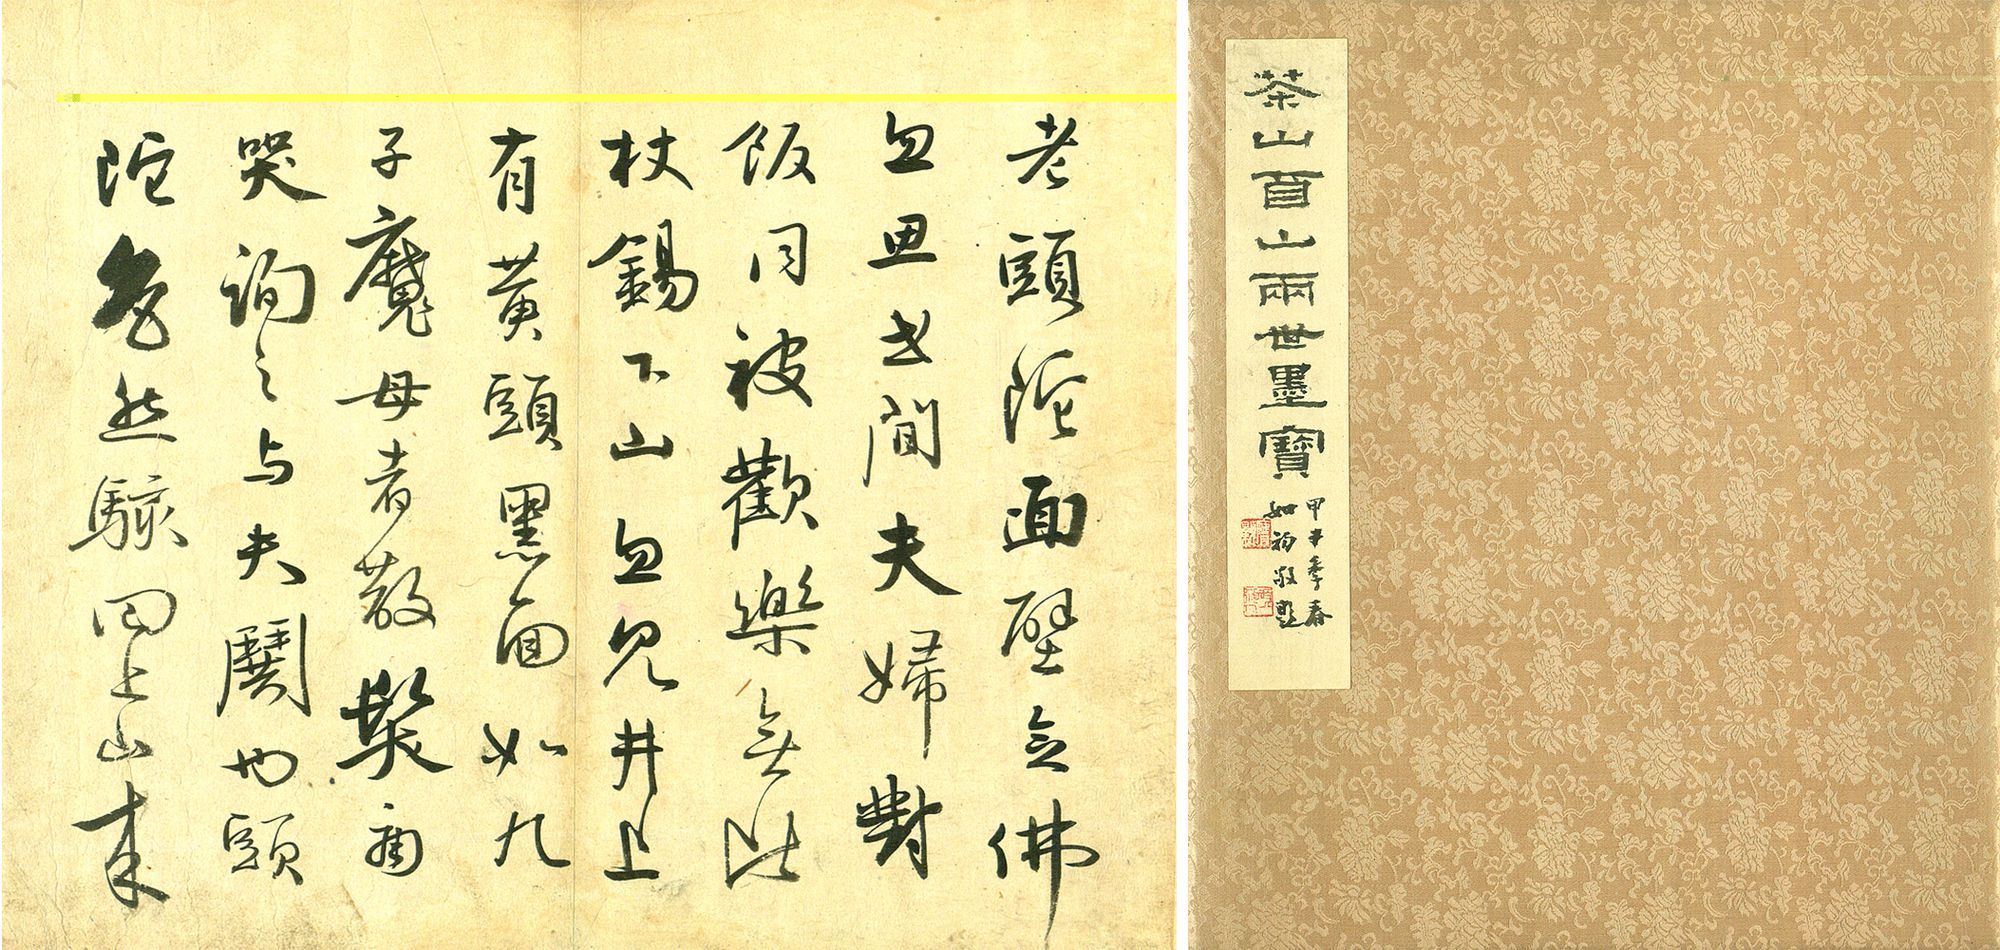 茶山酉山兩世墨寶
甲申季春
如初敬題
老頭陀面壁念佛
忽思世間夫婦對
飯同被歡樂無比
杖錫下山忽見井上
有黃頭黑面如九
子魔母者散髮而
哭詢之与夫鬪也頭
陀然駭回上山來